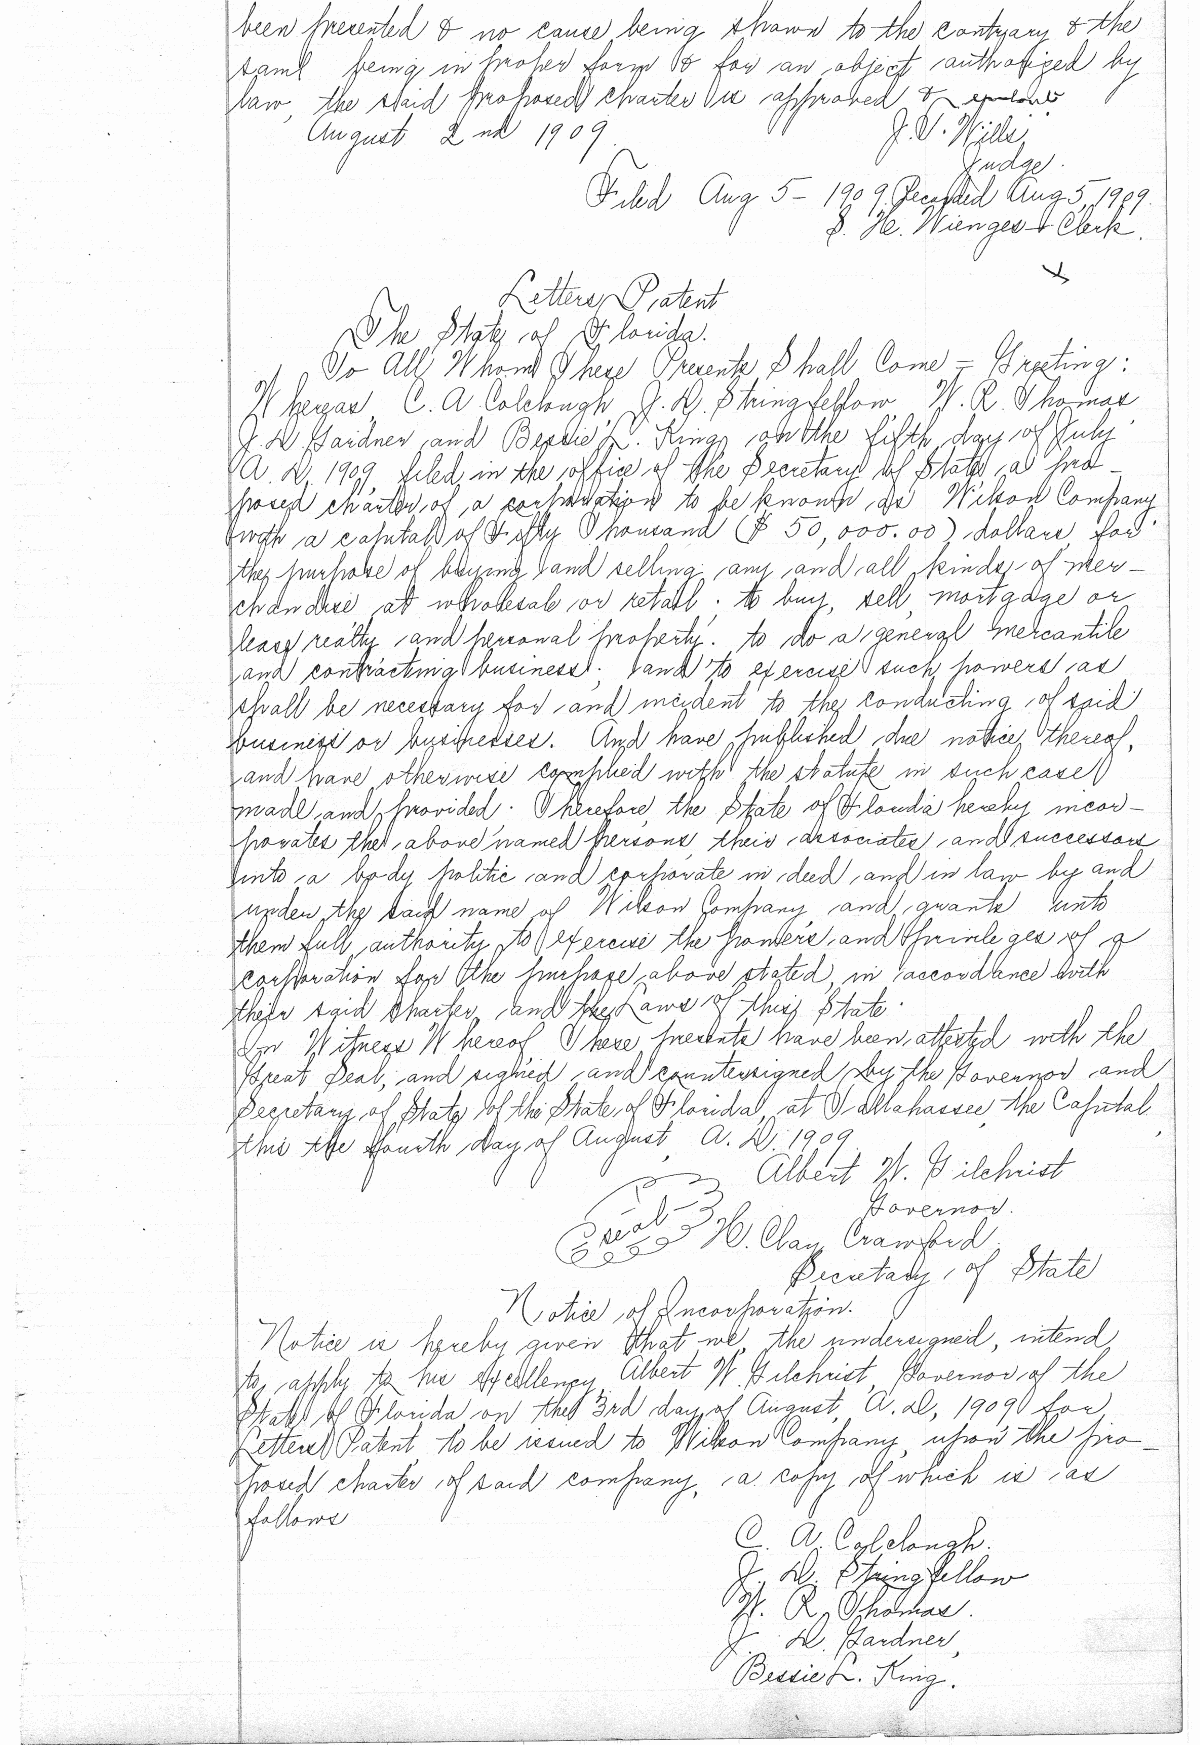 been presented & no cause being shown to the contrary & the
same being in proper form & for an object authorized by
law, the said proposed charter is approved &
August 2nd 1909
J. T. Wills,
Judge.
Filed Aug 5 - 1909. Recorded Aug 5, 1909.
S. H. Wienges Clerk.
Letters Patent
The State of Florida.
To All Whom These Presents Shall Come = Greeting:
Whereas C. A Colclough, J. D. Stringfellow, W. R. Thomas
J. D Gardner and Bessie L. King, on the fifth day of July
A. D. 1909, filed in the office of the Secretary of State, a pro-
posed charter of a corporation to be known as Wilson Company
with a capital of Fifty Thousand ($ 50,000.00) dollars, for
the purpose of buying and selling any and all kinds of mer-
chandise at wholesale or retail; to buy, sell, mortgage or
lease realty and personal property. to do a general mercantile
and contracting business; and to exercise such powers as
shall be necessary for and incident to the conducting of said
business or businesses. And have published due notice thereof,
and have otherwise complied with the statute in such case
made and provided. Therefore, the State of Florida hereby incor-
porates the above named persons, their associates and successors
into a body politic and corporate in deed and in law by and
under the said name of Wilson Company, and grants unto
them full authority to exercise the powers and privileges of a
corporation for the purpose above stated, in accordance with
their said charter, and the Laws of this State.
In Witness Whereof These presents have been attested with the
Great Seal, and signed and countersigned by the Governor and
Secretary of State of the State of Florida, at Tallahassee, the Capital,
this the fourth day of August A. D. 1909.
Albert W. Gilchrist
Governor.
seal H. Clay Crawford
Secretary of State
Notice of Incorporation.
Notice is hereby given that we, the undersigned, intend
to apply to his excellency Albert W. Gilchrist, Governor of the
State of Florida, on the 3rd day of August, A. D, 1909 for
Letters Patent to be issued to Wilson Company, upon the pro-
posed charter of said company, a copy of which is as
follows
C. A. Colclough.
J. D. Stringfellow
W. R. Thomas.
J. D. Gardner,
Bessie L. King.